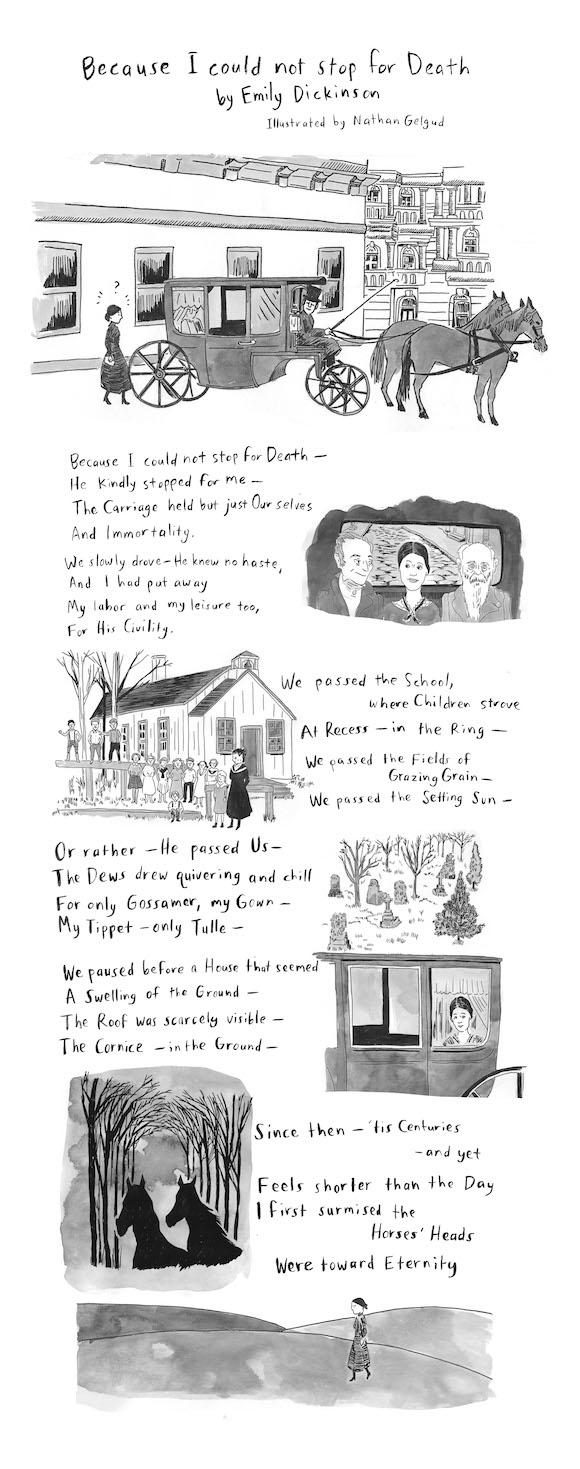 Because I could not stop for Death
by Emily Dickinson
Illustrated by Nathan Gelgud
?
Because I could not stop for Death –
He kindly stopped for me –
The Carriage held but just Our selves
And Immortality.
We slowly drove – He knew no haste,
And I had put away
My labor and my leisure too,
For His Civility.
We passed the School,
where Children strove
At Recess – in the Ring –
We passed the Fields of
Grazing Grain –
We passed the Setting Sun –
Or rather – He passed Us –
The Dews drew quivering and chill
For only Gossamer, my Gown –
My Tippet – only Tulle –
We paused before a House that seemed
A Swelling of the Ground –
The Roof was scarcely visible –
The Cornice – in the Ground –
Since then – 'tis Centuries
– and yet
Feels shorter than the Day
I first surmised the
Horses' Heads
Were toward Eternity